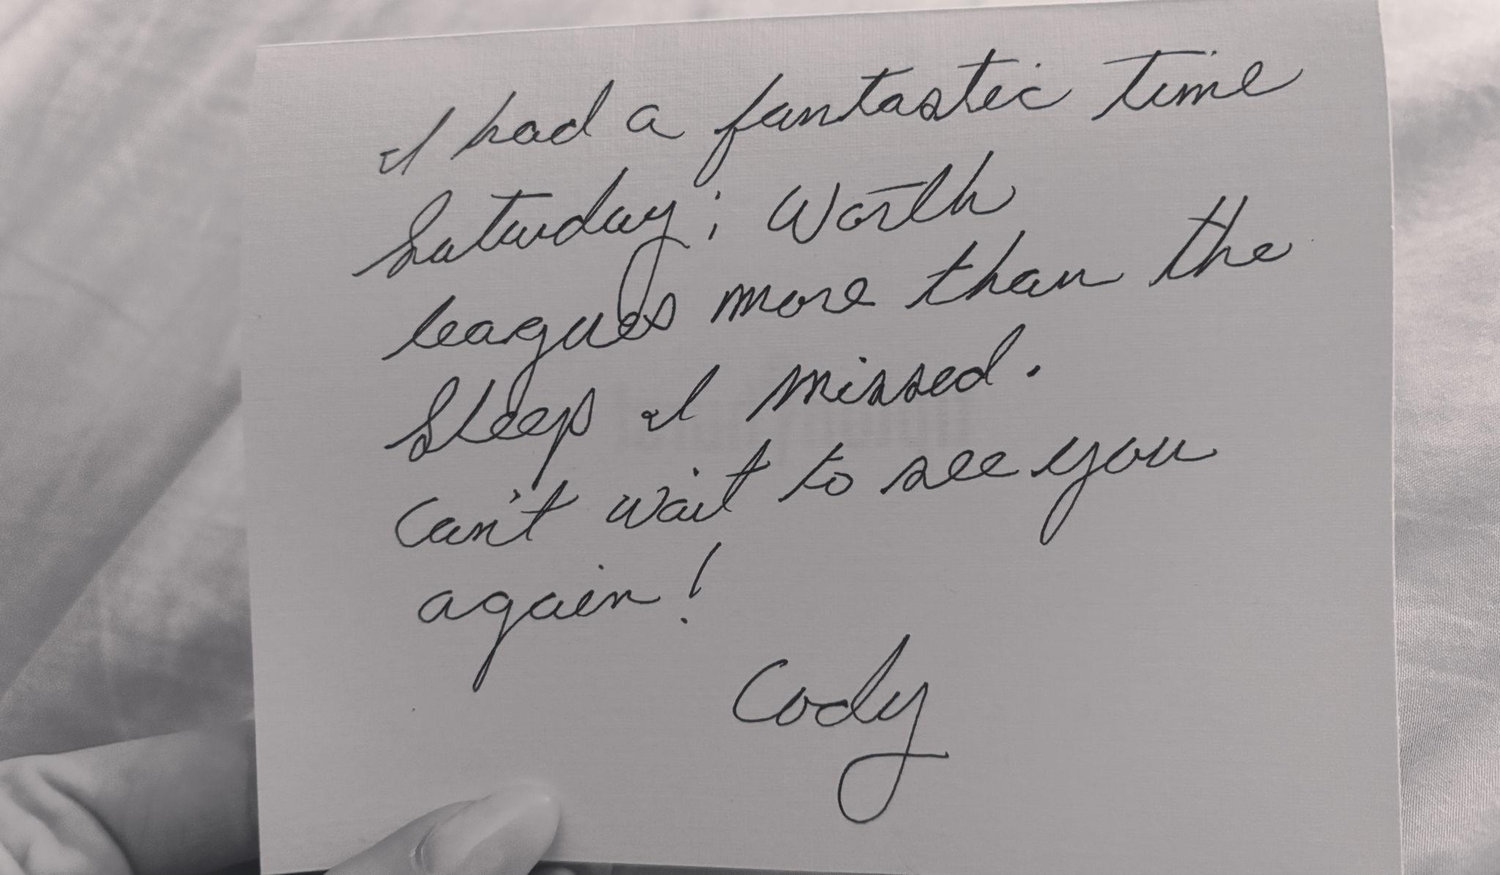 I had a fantastic time
Saturday; Worth
leagues more than the
Sleep I missed.
Can't wait to see you
again!
Cody